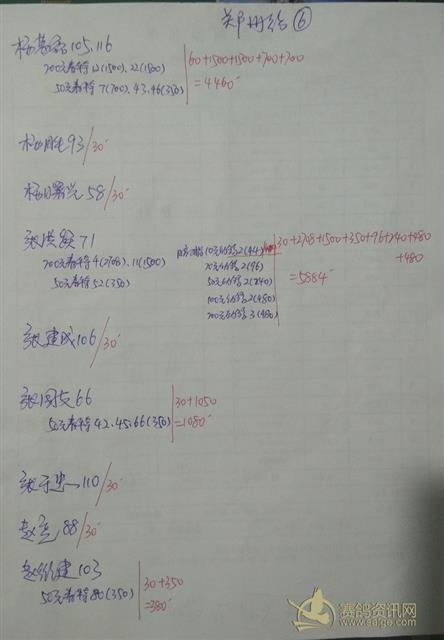 郑州给⑥
杨慧磊105.116
200元春特12(1500).22(1500)
50元春特7(700).43.46(350)
60+1500+1500+700+700
=4460
杨胜93/30
杨曙光58/30
张洪68 71
200元春特4(2708).11(1500)
50元春特52(350)
10元分组2(44)
20元分组2(96)
50元分组2(240)
100元分组2(480)
200元分组3(480)
30+2708+1500+350+96+240+480
+480
=5884
张建成106/30
张国良66
50元春特42.45.66(350)
30+1050
=1080
张于忠110/30
赵亮88/30
赵纪建103
50元春特80(350)
30+350
=380
赛鸽资讯网
www.saige.com